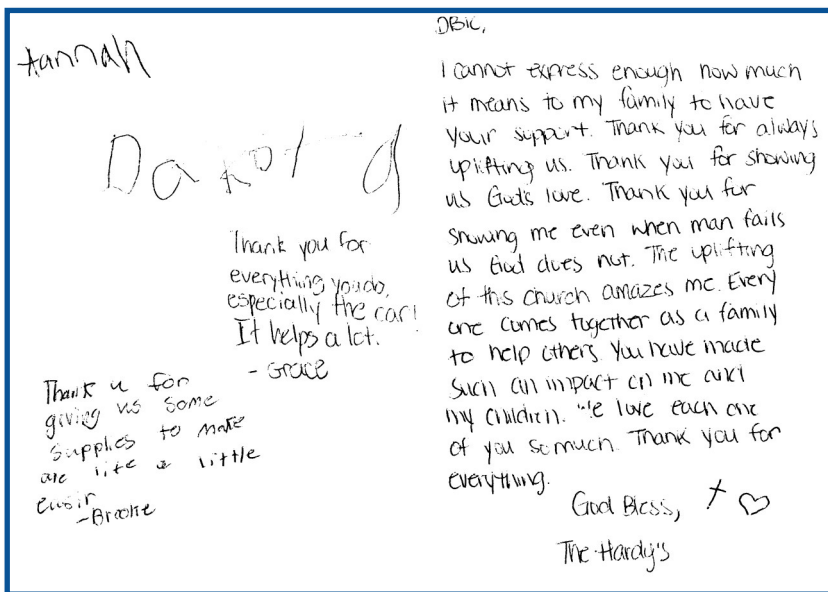 Hannah
Dakota
Thank you for
everything you do,
especially the car!
It helps a lot.
- Grace
Thank u for
giving us some
supplies to make
are life a little
ewsir
-Brooke
DBIC,
I cannot express enough how much
it means to my family to have
your support. Thank you for always
uplifting us. Thank you for showing
us God's love. Thank you for
showing me even when man fails
us God does not. The uplifting
of this church amazes me. Every
one comes together as a family
to help others. You have made
such an impact on me and
my children. We love each one
of you so much. Thank you for
everything.
God Bless,
The Hardy's